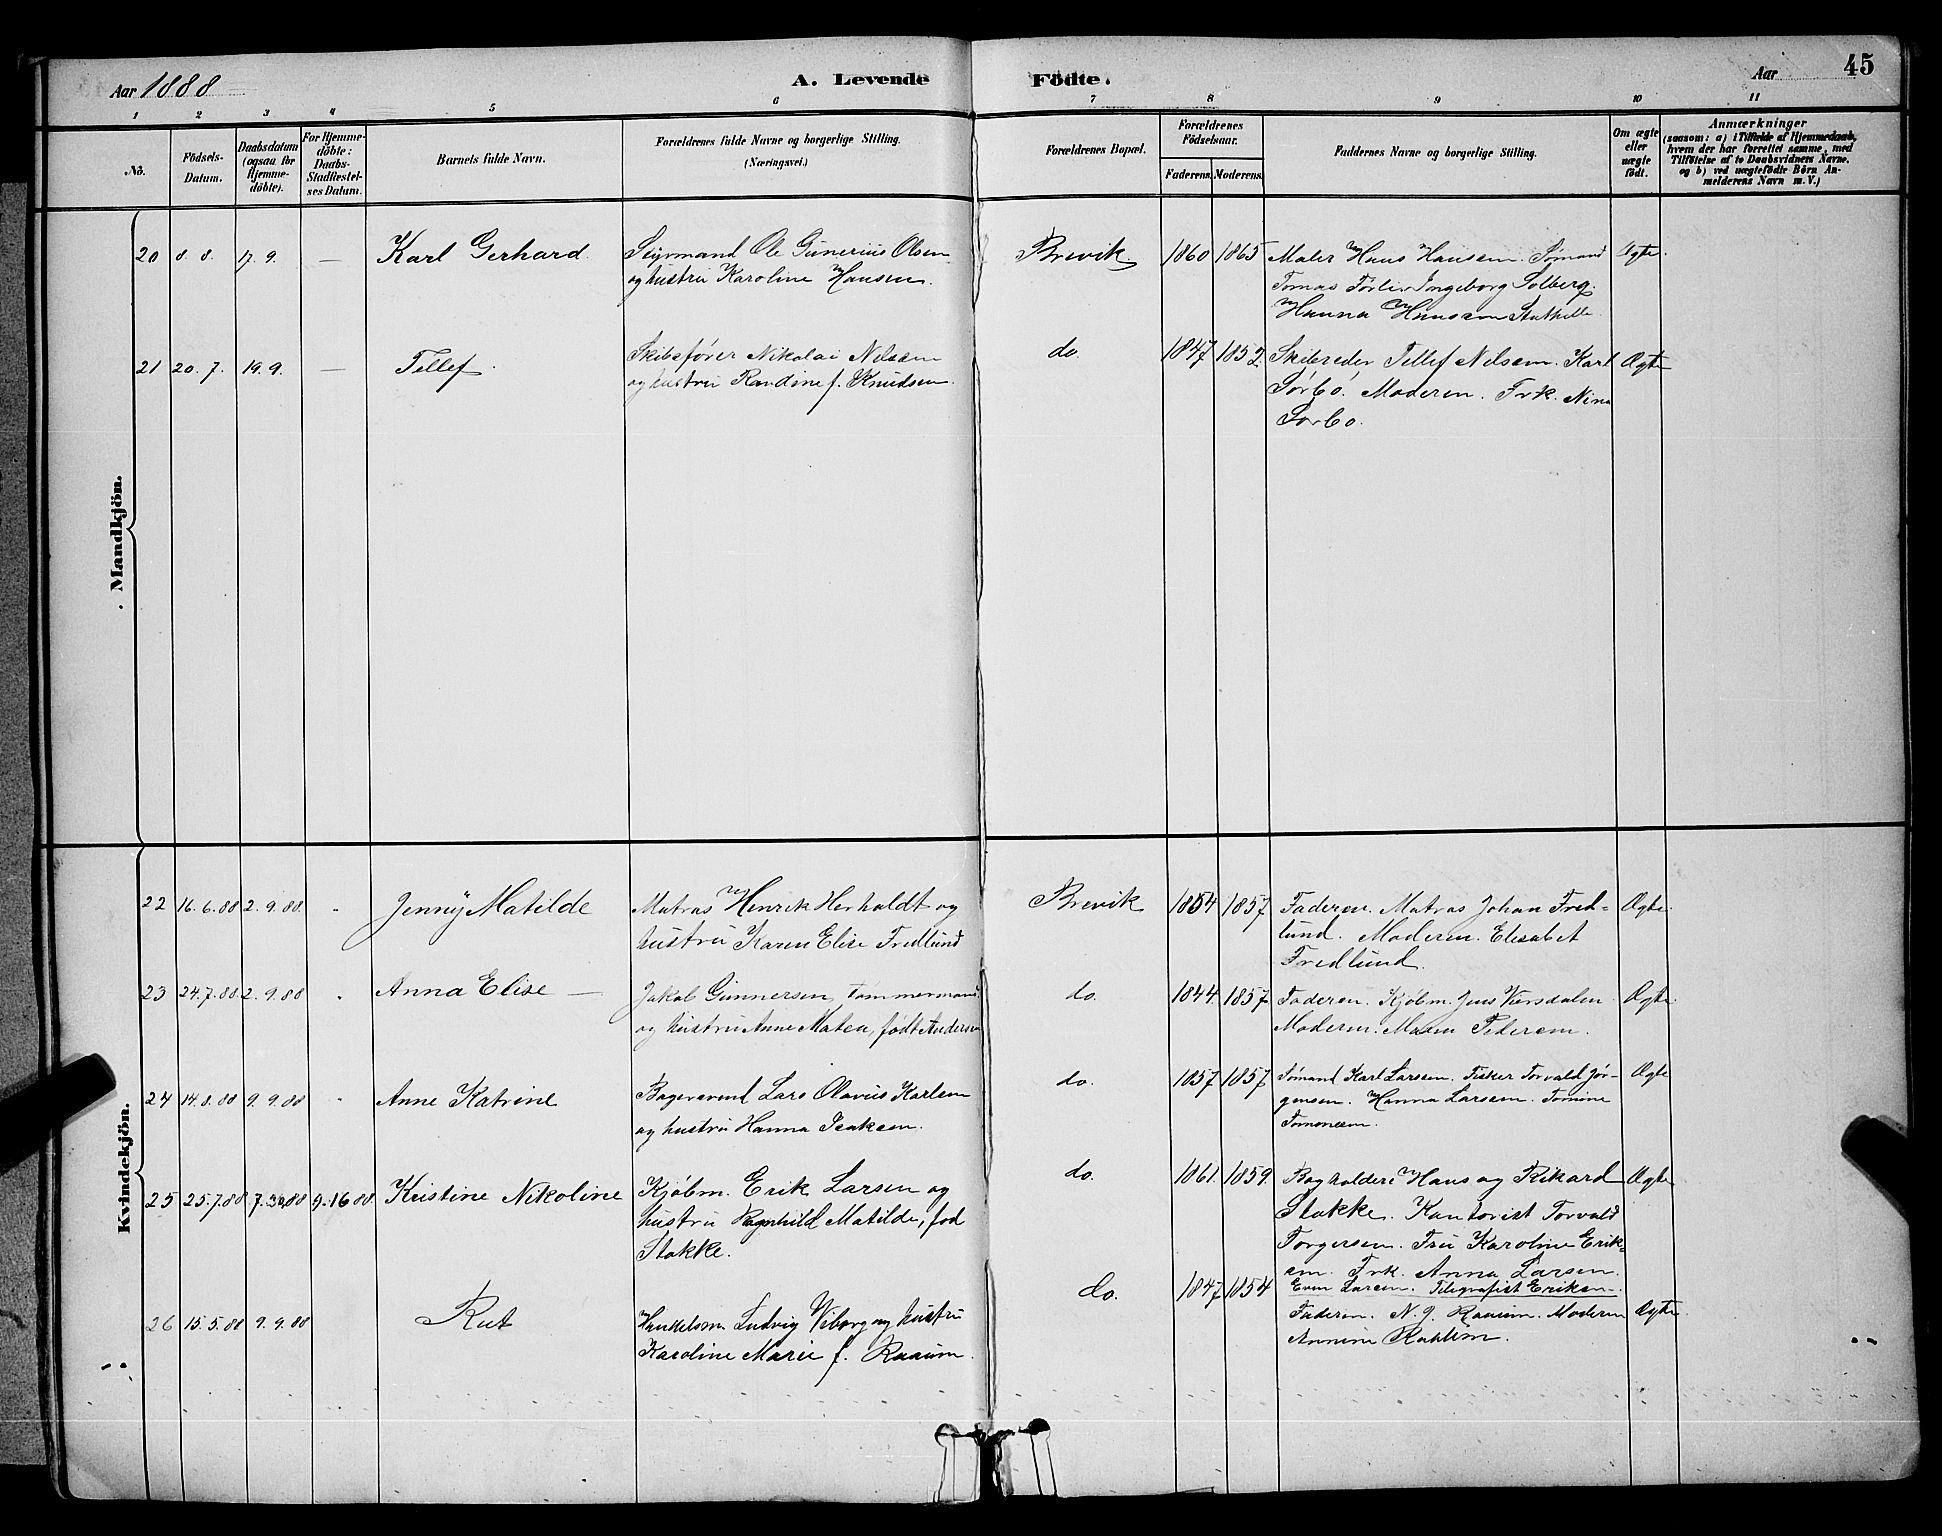 Aar 1888
A. Levende Födte.
Aar
45
1 2 3 4 5 6 7 8 9 10 11
No.
Födsels-Datum.
Daabsdatum (ogsaa for Hjemmedöbte).
For Hjemmedöbte: Daabs-Stadfæstelses Datum.
Barnets fulde Navn.
Forældrenes fulde Navne og borgerlige Stilling. (Næringsvei.)
Forældrenes Bopæl.
Forældrenes Födselsaar.
Faderens. Moderens.
Faddernes Navne og borgerlige Stilling.
Om ægte eller uægte födt.
Anmærkninger
(saasom: a) i Tilfælde af Hjemmedaab, hvem der har forrettet samme, med Tilföielse af to Daabsvidners Navne. og b) ved uægtefödte Börn Anmelderens Navn m.V.)
Mandkjön.
20 8.8. 17.9. — Karl Gerhard. Styrmand Ole Gunerius Olsen Brevik. 1860 1865 Maler Hans Hansen. Sømand Ægte.
og hustru Karoline Hansen. Tomas Ingeborg Solberg.
Hanna Hansen Stathelle.
21 20.7. 19.9. — Tellef. Skibsfører Nikolai Nilsen do. 1847 1852 Skibsreder Tellef Nilsen. Karl Ægte
og hustru Randine f. Knudsen. Sørbö. Moderen. Frk. Nina
Sørbö.
Kvindekjön.
22 16.6.88 2.9.88. " Jenny Matilde Matros Henrik Herholdt og Brevik 1854 1857 Faderen. Matros Johan Fred-
hustru Karen Elise Fredlund lund. Moderen. Elisabet Ægte.
Fredlund.
23 24.7.88. 2.9.88 " Anna Elise — Jakob Gunnersen, Tømmermand do. 1844. 1857 Faderen. Kjøbm. Jens Ægte.
og hustru Anne Matea, født Andersen Moderen. Maren Pedersen.
24 14.8.88 9.9.88 " Anne Katrine Bagersvend Lars Olavus Karlsen do. 1857 1857 Sømand Karl Larssen. Fisker Torvald Jør- Ægte
og hustru Hanna Isaksen. gensen. Hanna Larsen. Tomine
25 25.7.88 88 9.16 88 Kristine Nikoline Kjøbm. Erik Larsen og do. 1861. 1859. Bogholder Hans og Rikard Ægte
hustru Ragnhild Matilde, fød Stokke. Kontorist Torvald
Stokke. Torgersen. Fru Karoline Erik-
sen. Frk. Anna Larsen.
Even Larsen. Telegrafist Eriksen.
26 15.5.88 9.9.88 Rut Handelsm. Ludvig Viborg og hustru do. 1847 1854 Faderen. N. J. Raaum. Moderen Ægte.
Karoline Marie f. Raaum.